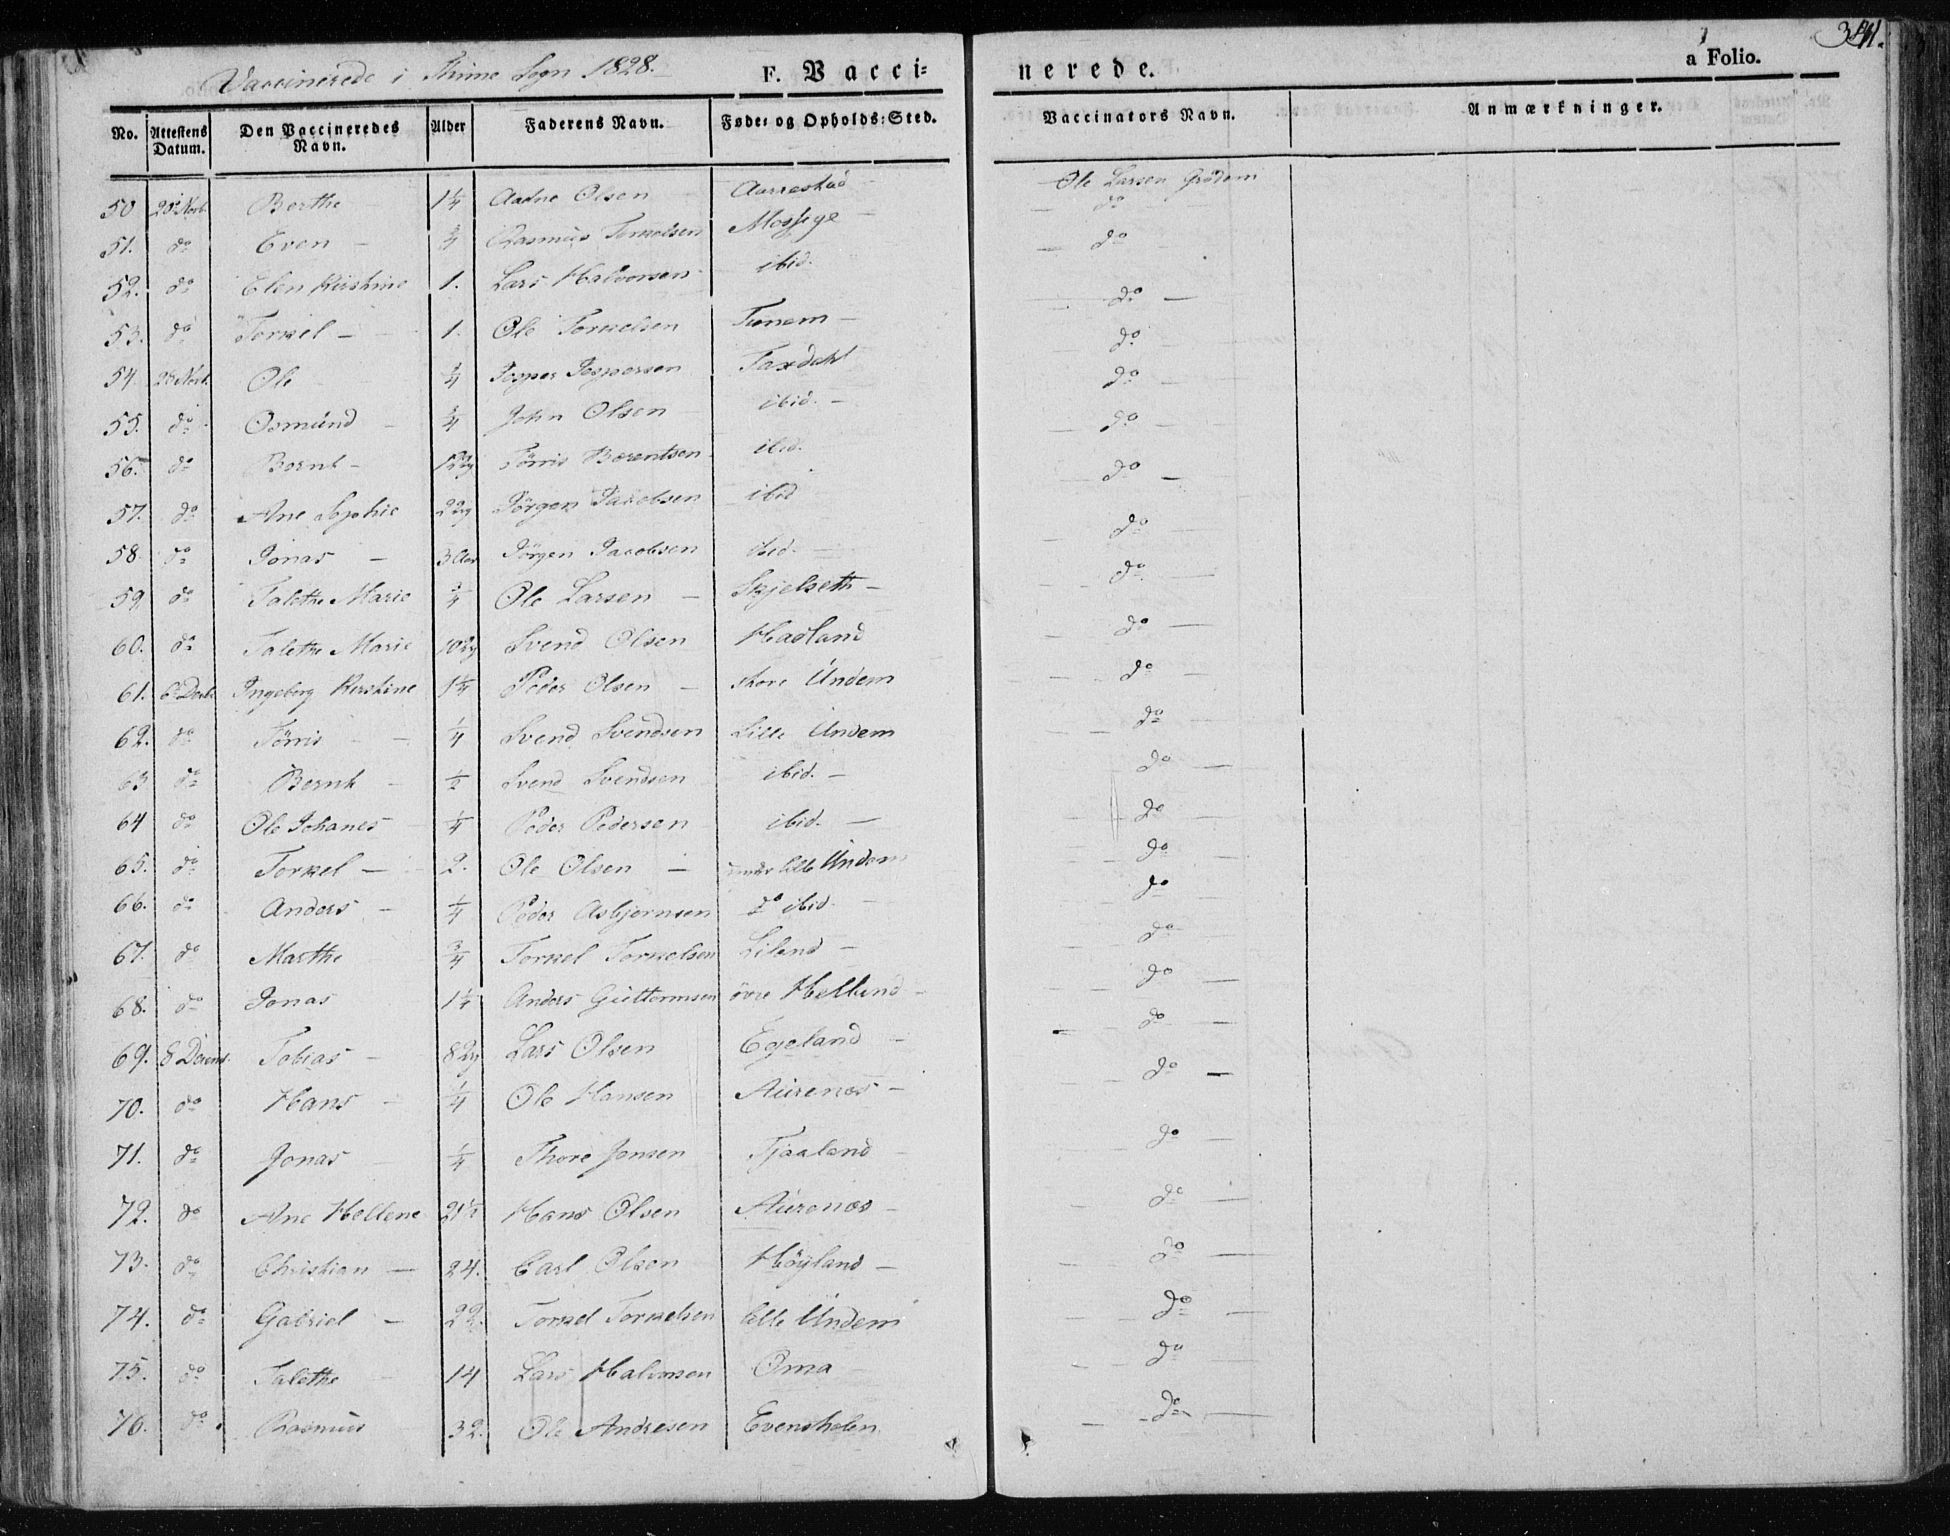 341.
Vaccinerede i Thime Sogn 1828.
F. Vacci=
nerede.
a Folio.
No. Attestens Datum. Den Vaccineredes Navn. Alder Faderens Navn. Føde= og Opholds=Sted. Vaccinators Navn. Anmærkninger.
50 Berthe 1 1/4 Aadne Olsen Aarrestad Ole Larsen Grödem
51. do Even – 3/4 Rasmus Torkelsen Mossige do
52. do Elen Kirstine 1. Lars Halvorsen ibid. do
53. do Torkel – 1. Ole Torkelsen Tunem – do
54. 28 Novb. Ole 3/4 Jesper Jespersen Taxdahl do
55. do Osmund – 3/4 John Olsen ibid. – do
56. do Bernt – Törris Berentsen ibid. do
57. do Ane Sophie Jörgen Jacobsen ibid do
58. do Jonas – 3 Aar Jörgen Jacobsen ibid. – do
59. do Talethe Marie 3/4 Ole Larsen – Skjelseth – do
60. do Talethe Marie Svend Olsen Haaland do
61. 6 Decb. Ingeborg Kirstine 1 1/4 Peder Olsen – store Undem do
62. do Törris – 1/4 Svend Svendsen Lille Undem do
63 do Bernt – 1/2 Svend Svendsen ibid. – do
64 do Ole Johanes 1/4 Peder Pedersen ibid. – do
65. do Torkel – 2. Ole Olsen – under lille Undem do
66. do Anders – 1/4 Peder Asbjørnsen do ibid. do
67. do Marthe 3/4 Torkel Torkelsen Liland – do
68. do Jonas 1 1/4 Anders Guttormsen övre Helland – do
69. 8 Decemb. Tobias – Lars Olsen Egeland – do
70. do Hans – 1/4 Ole Hansen Aurenes – do
71. do Jonas – 1/4 Thore Jonsen Tjaaland – do
72. do Ane Hellene 21 1/2 Hans Olsen Aurenes – do
73. do Christian – 24. Carl Olsen Höyland – do
74. do Gabriel – 22. Torkel Torkelsen lille Undem do
75. do Talethe 14 Lars Halvorsen Oma do
76. do Rasmus 32. Ole Andresen Evensholen do